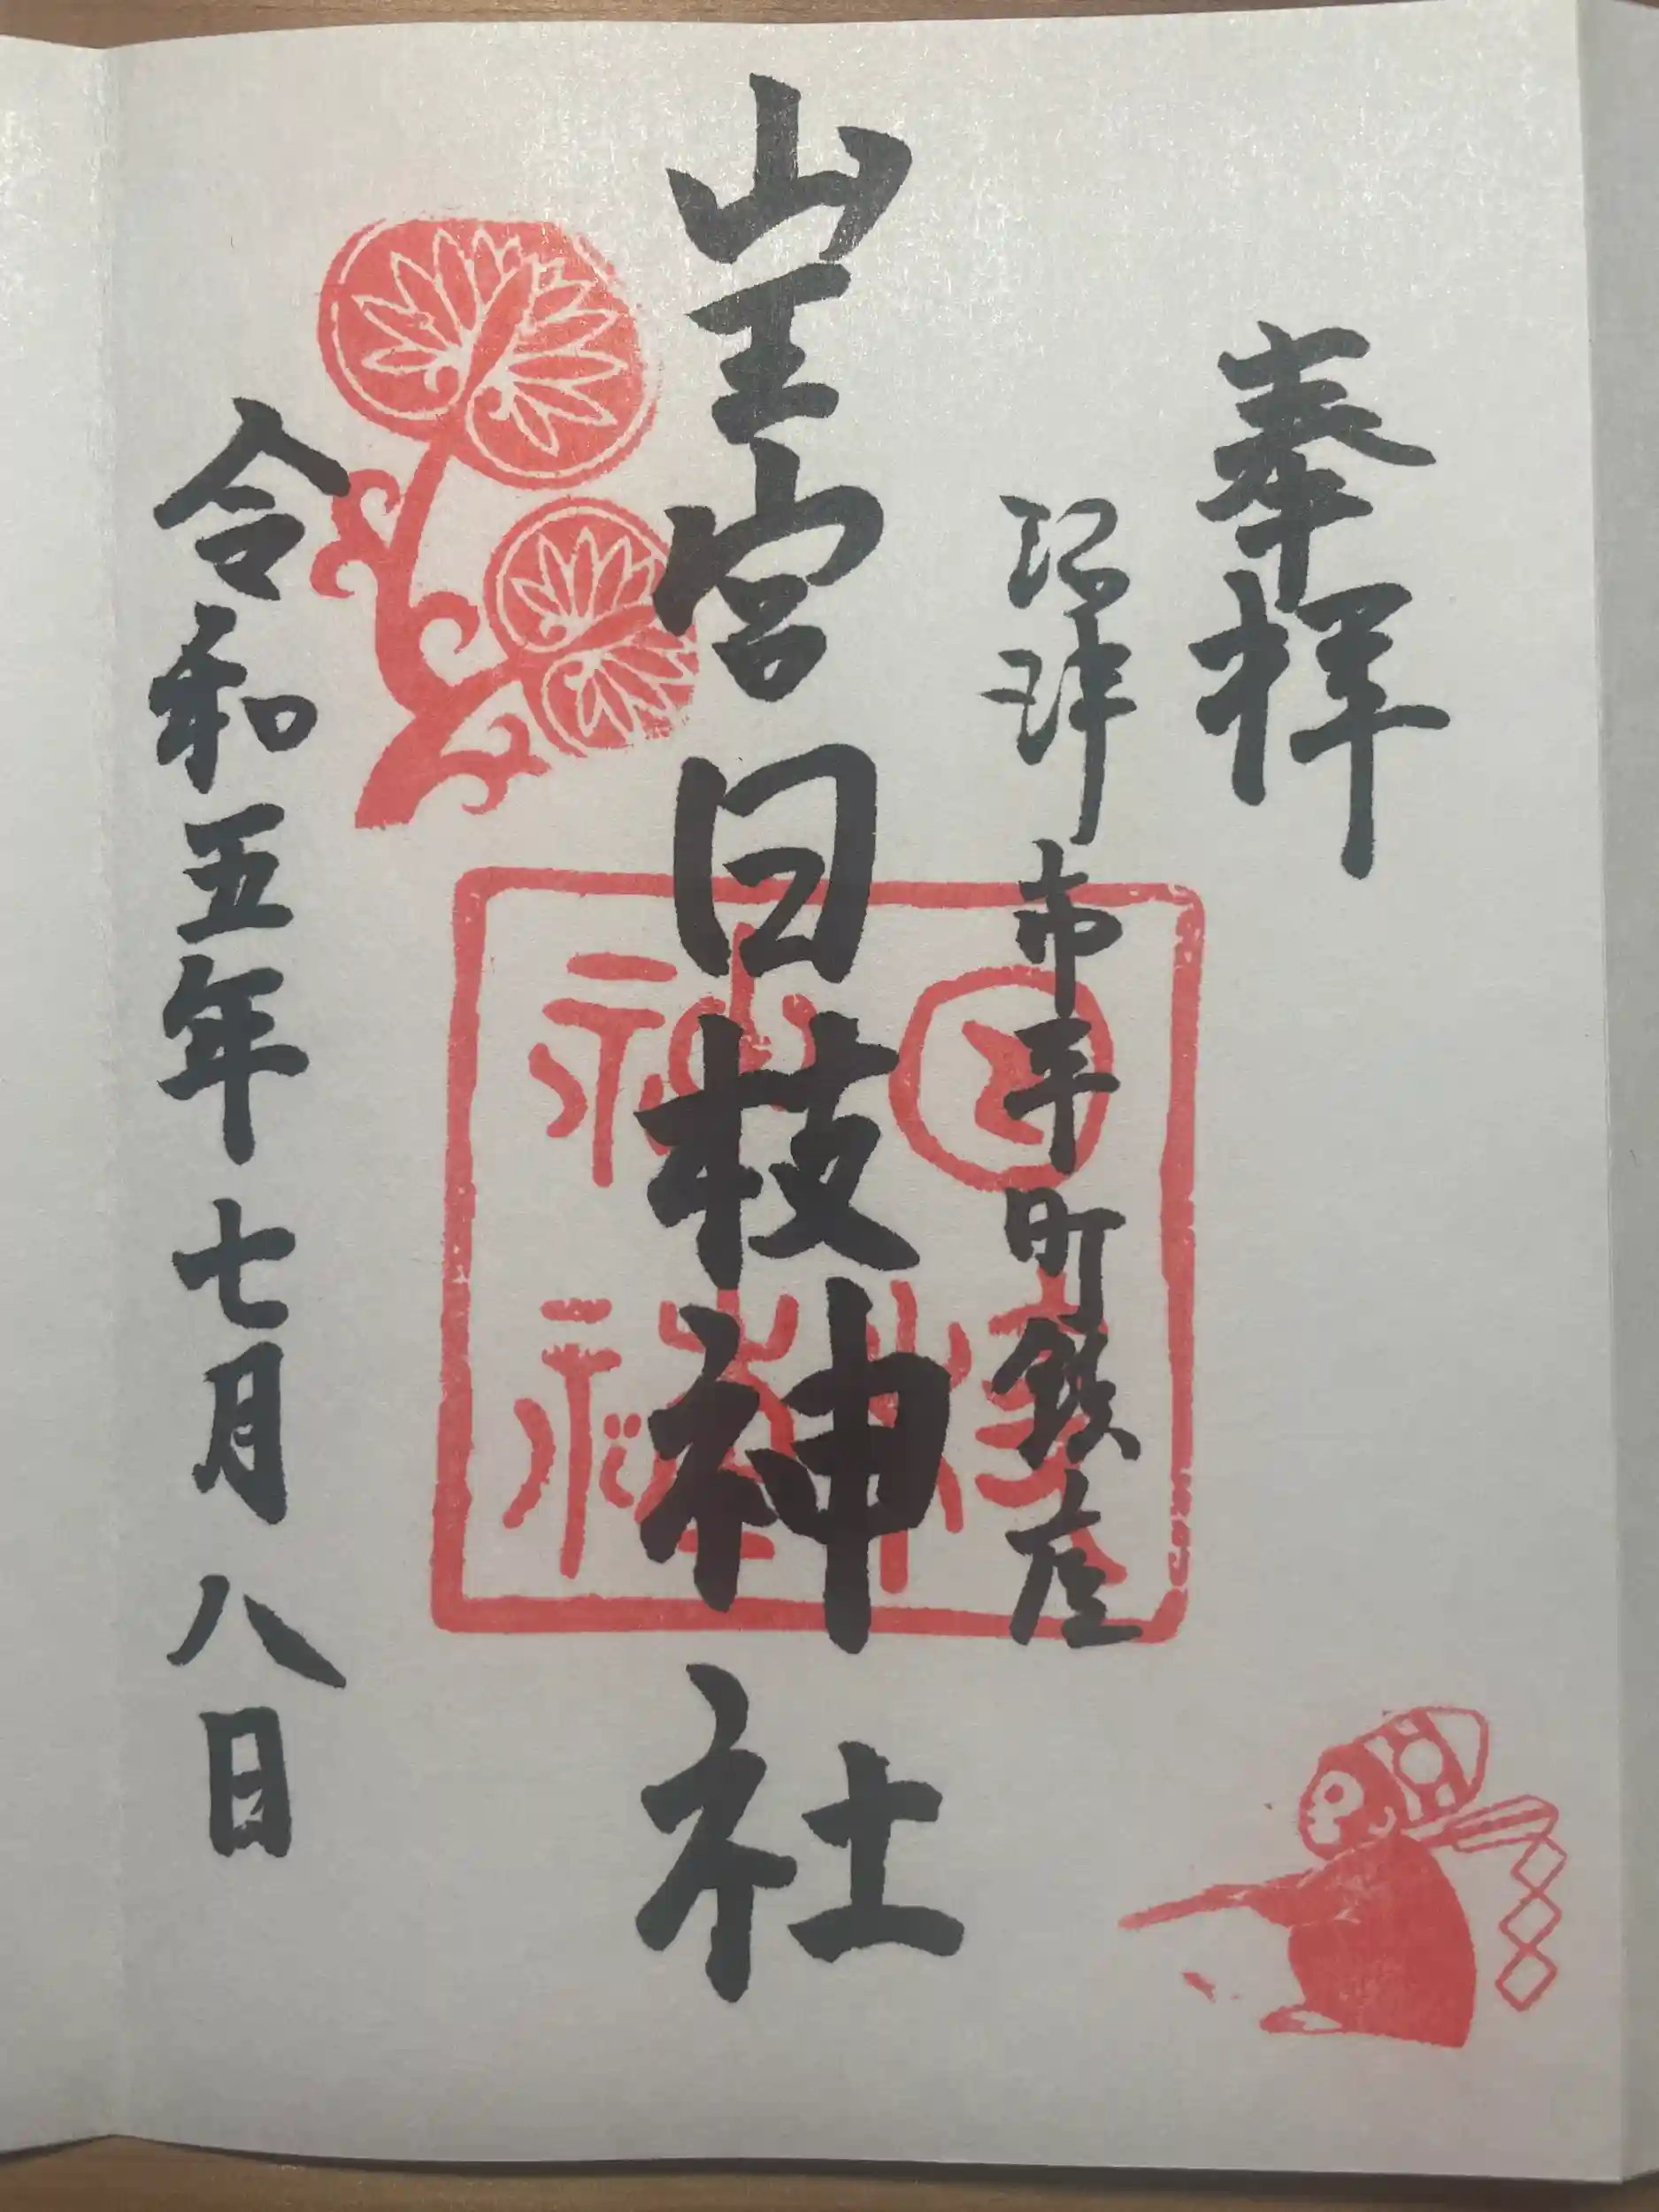 奉拝
沼津市平町鎮座
山王宮日枝神社
令和五年七月八日
日枝
神社